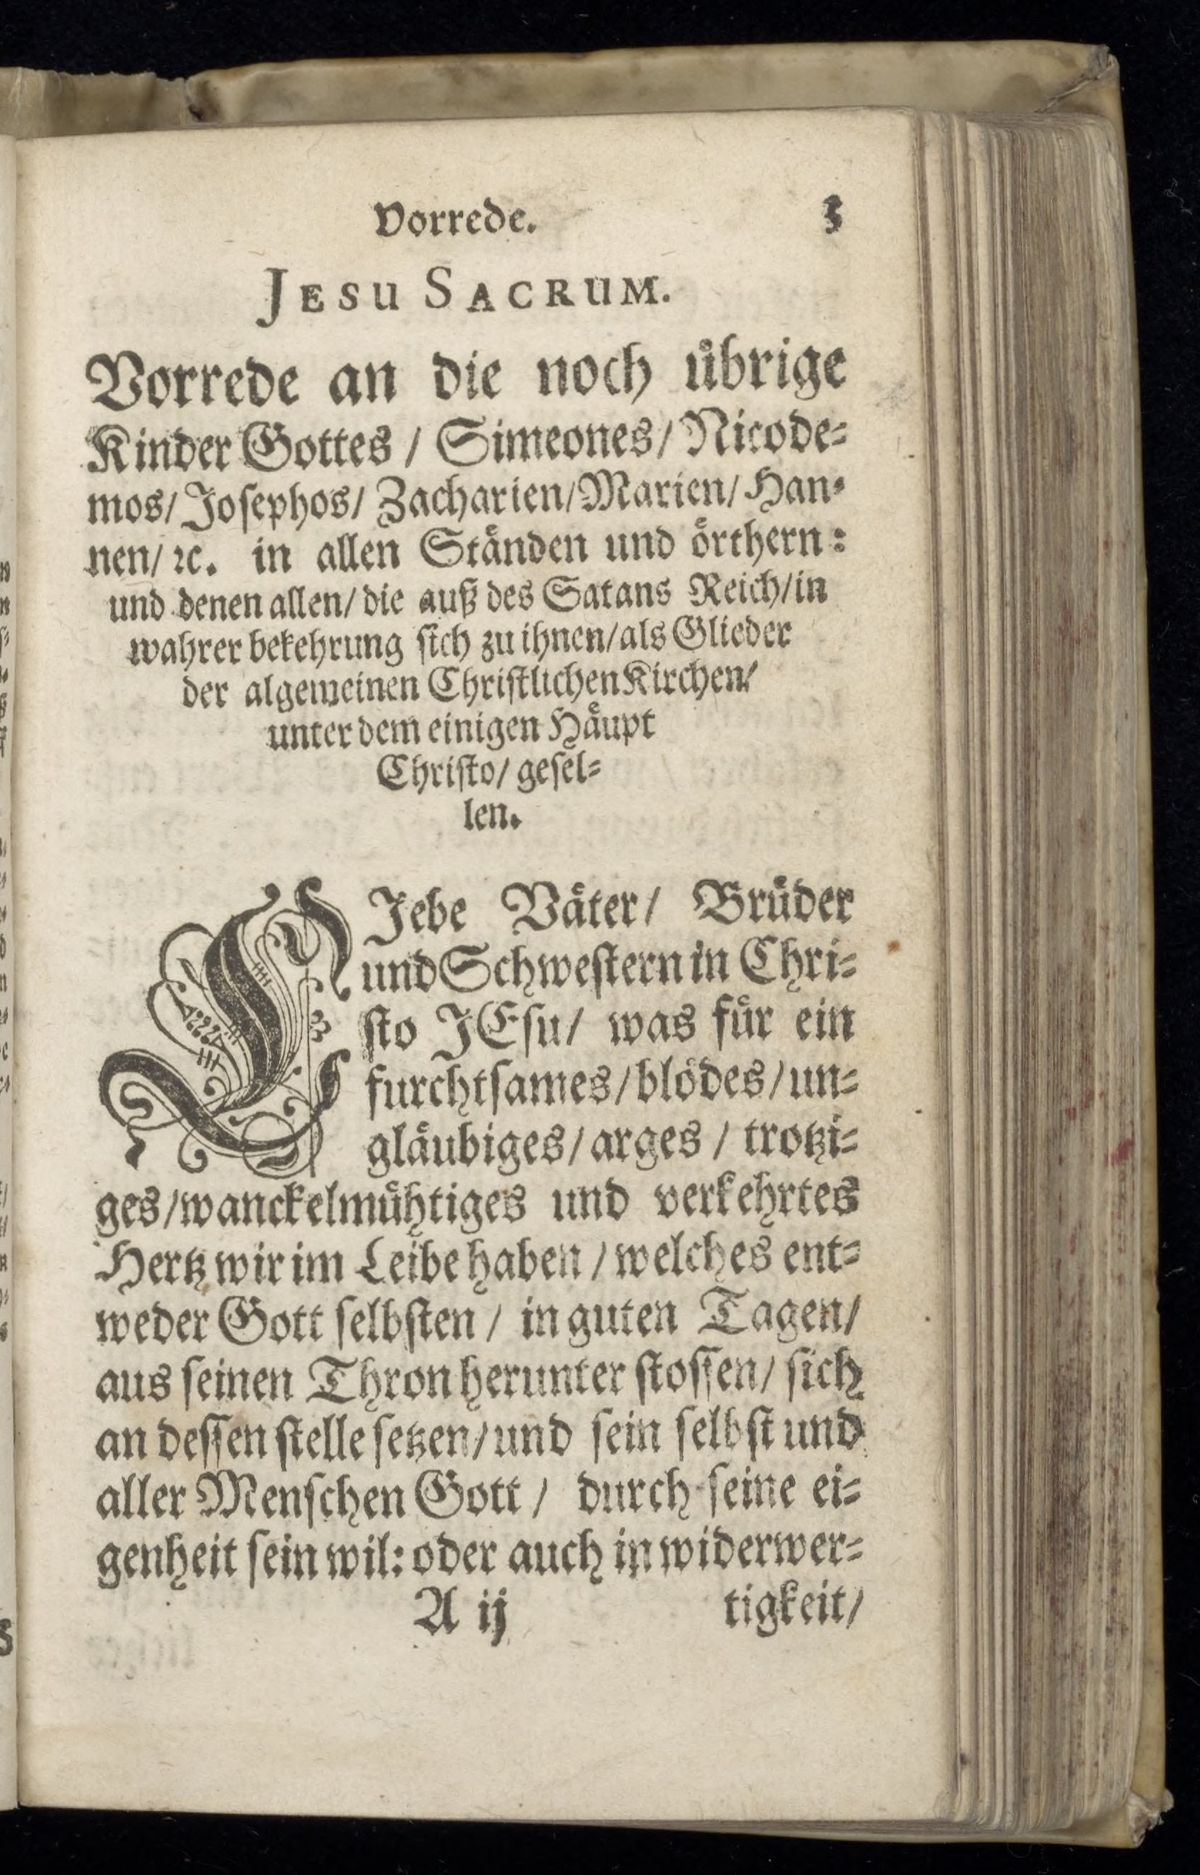 Vorrede. 3
JESU SACRUM.
Vorrede an die noch uͤbrige
Kinder Gottes / Simeones/ Nicode⸗
mos/ Joſephos/ Zacharien/Marien/ Han⸗
nen/ ꝛc. in allen Staͤnden und oͤrthern:
und denen allen/ die auß des Satans Reich/in
wahrer bekehrung ſich zu ihnen/als Glieder
der algemeinen Chriſtlichen Kirchen/
unter dem einigen Haͤupt
Chriſto/ geſel⸗
len.
LJebe Vaͤter/ Bruͤder
und Schweſtern in Chri⸗
ſto JEſu/ was fuͤr ein
furchtſames/bloͤdes/un⸗
glaͤubiges/arges / trotzi⸗
ges/wanckelmuͤhtiges und verkehrtes
Hertz wir im Leibe haben / welches ent⸗
weder Gott ſelbſten / in guten Tagen/
aus ſeinen Thron herunter ſtoſſen/ ſich
an deſſen ſtelle ſetzen/und ſein ſelbſt und
aller Menſchen Gott / durch ſeine ei⸗
genheit ſein wil: oder auch in widerwer⸗
A ij tigkeit/